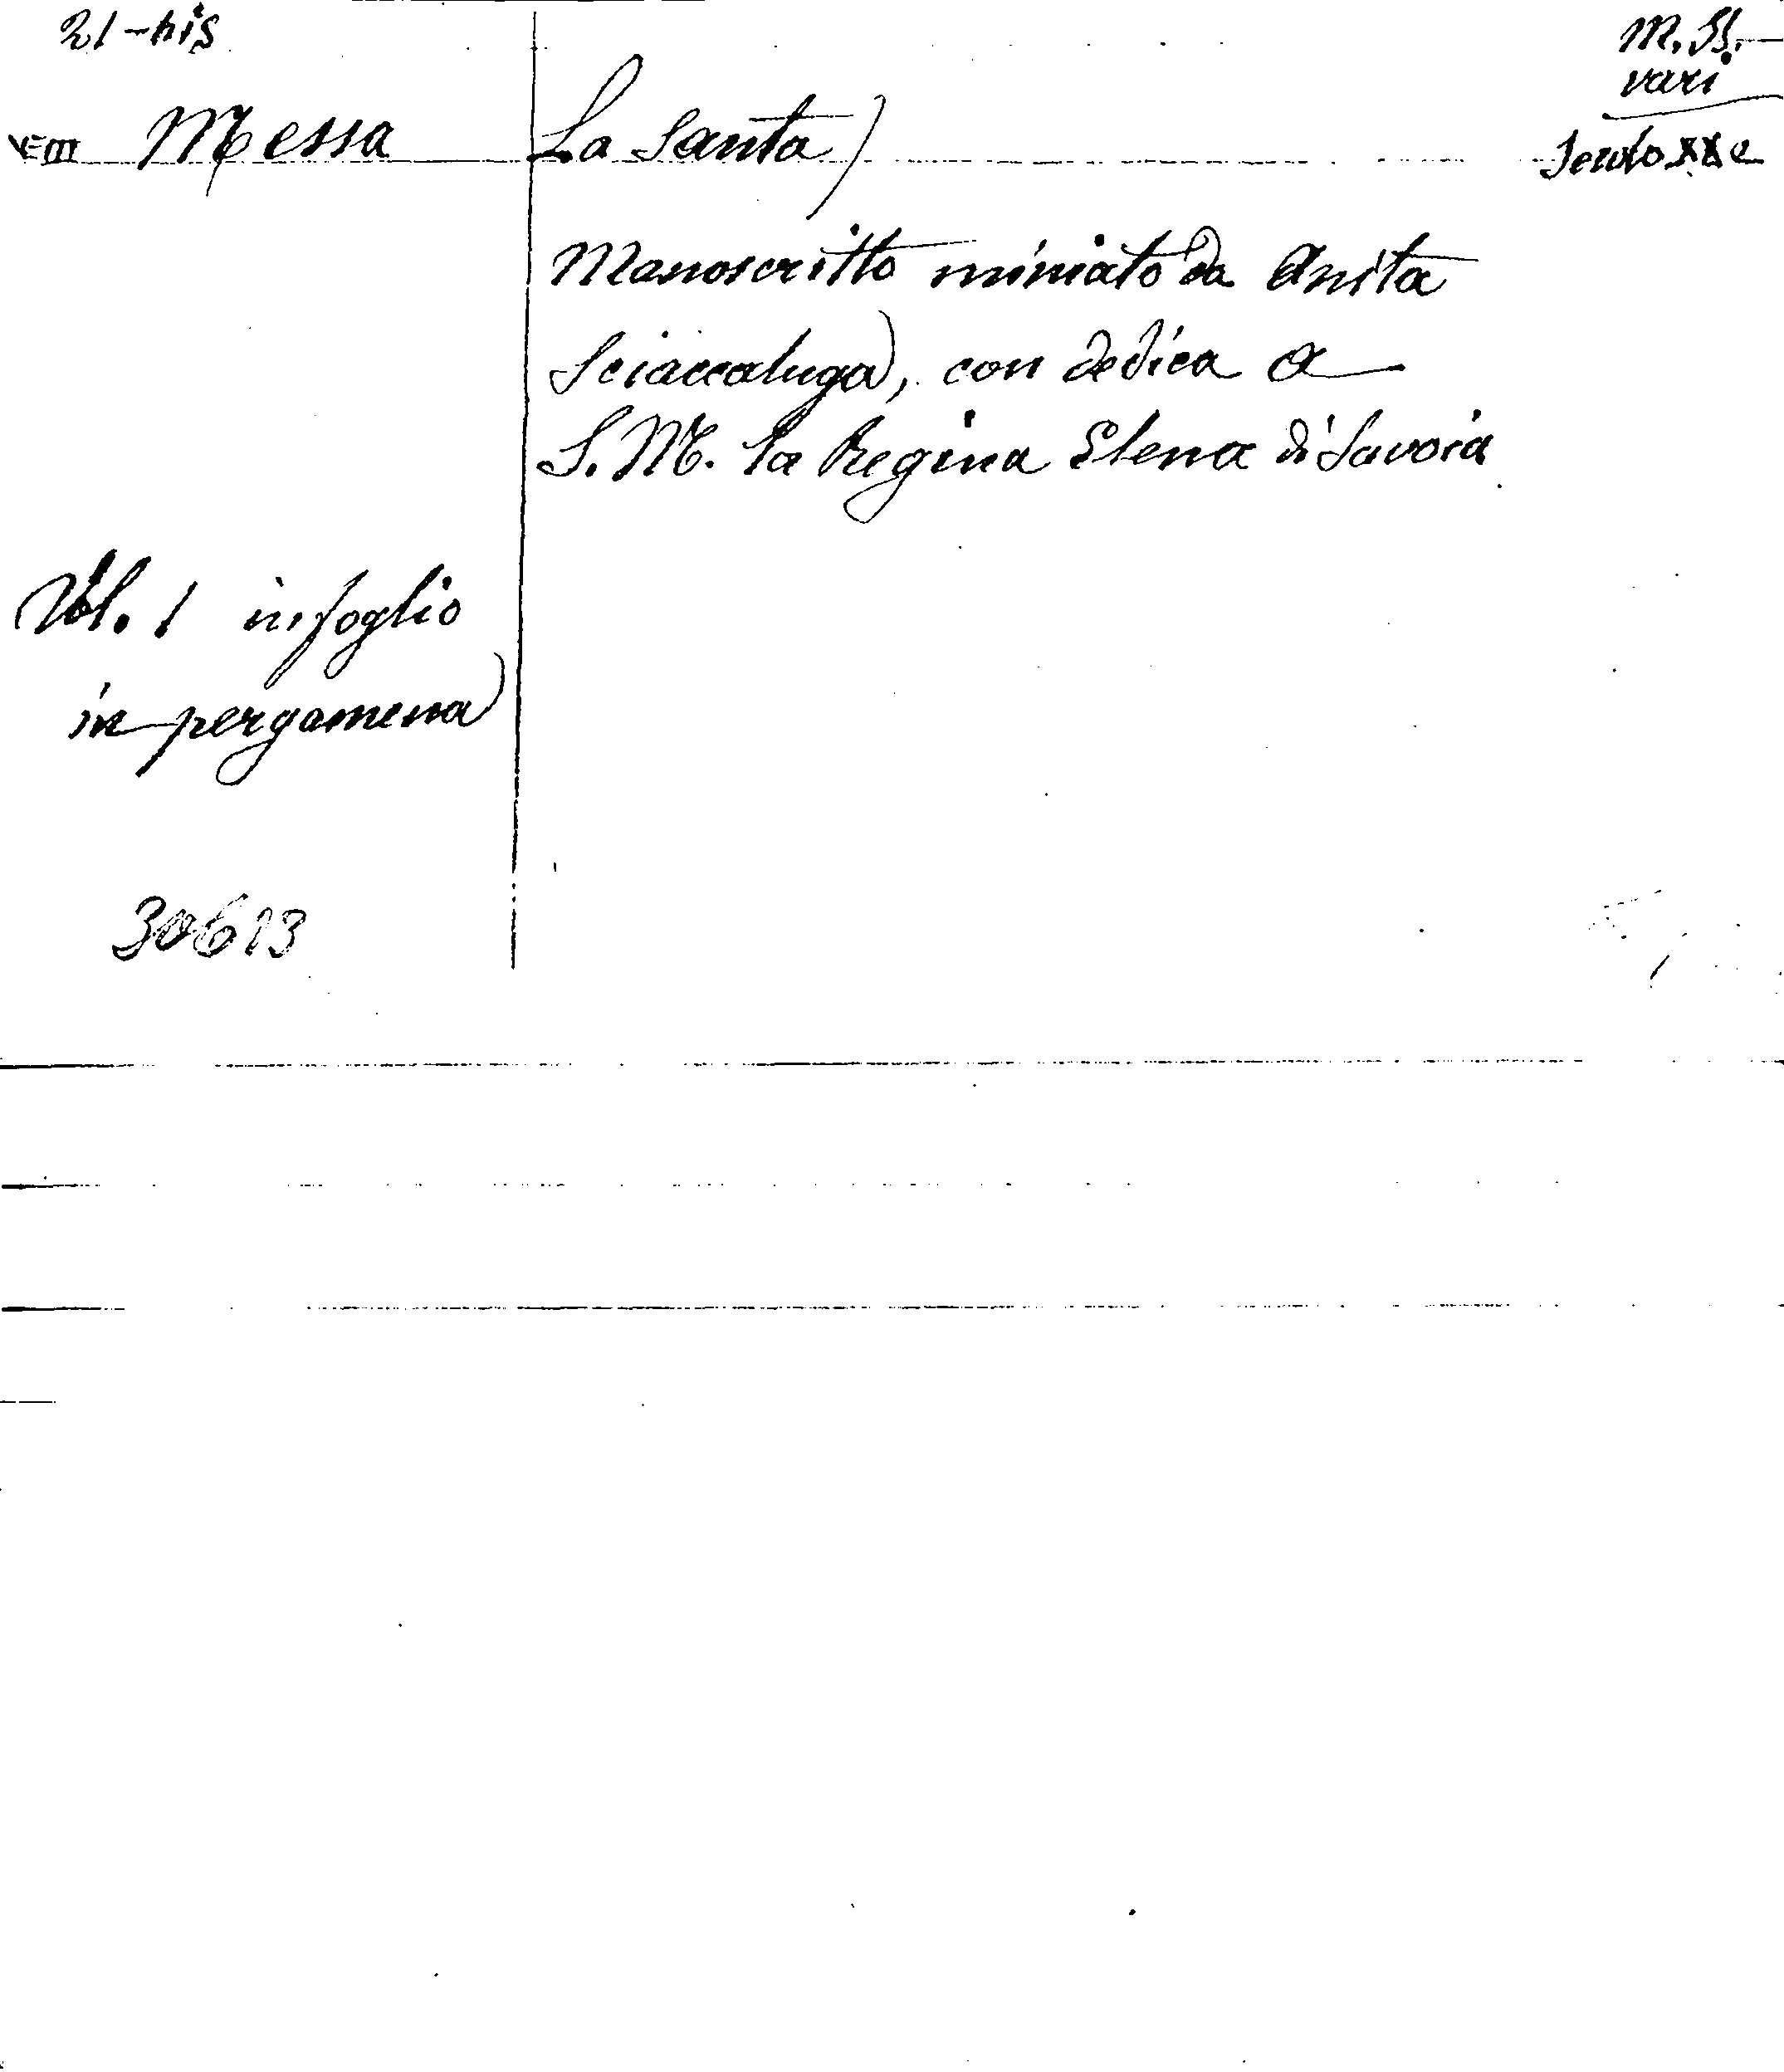 21-bis
M. SS.
vari
Messa La Santa
Manoscritto miniato da Anita
Sciaccaluga, con dedica a
S. M. la Regina Elena di Savoia
Vol. 1 in foglio
in pergamena
30613